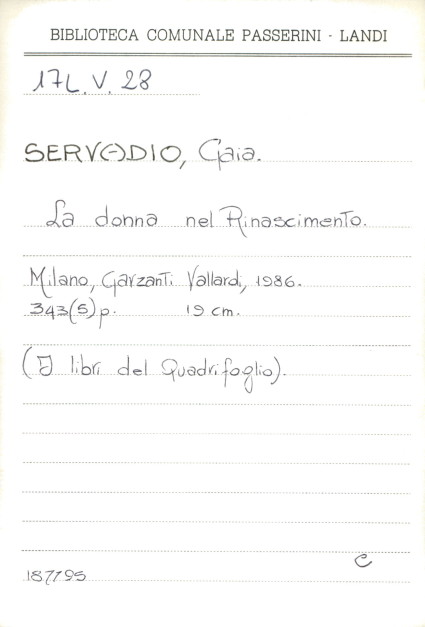 BIBLIOTECA COMUNALE PASSERINI · LANDI
17L.V. 28
SERVADIO, Gaia.
La donna nel Rinascimento.
Milano, Garzanti Vallardi, 1986.
343(5)p. 19 cm.
(I libri del Quadrifoglio).
C